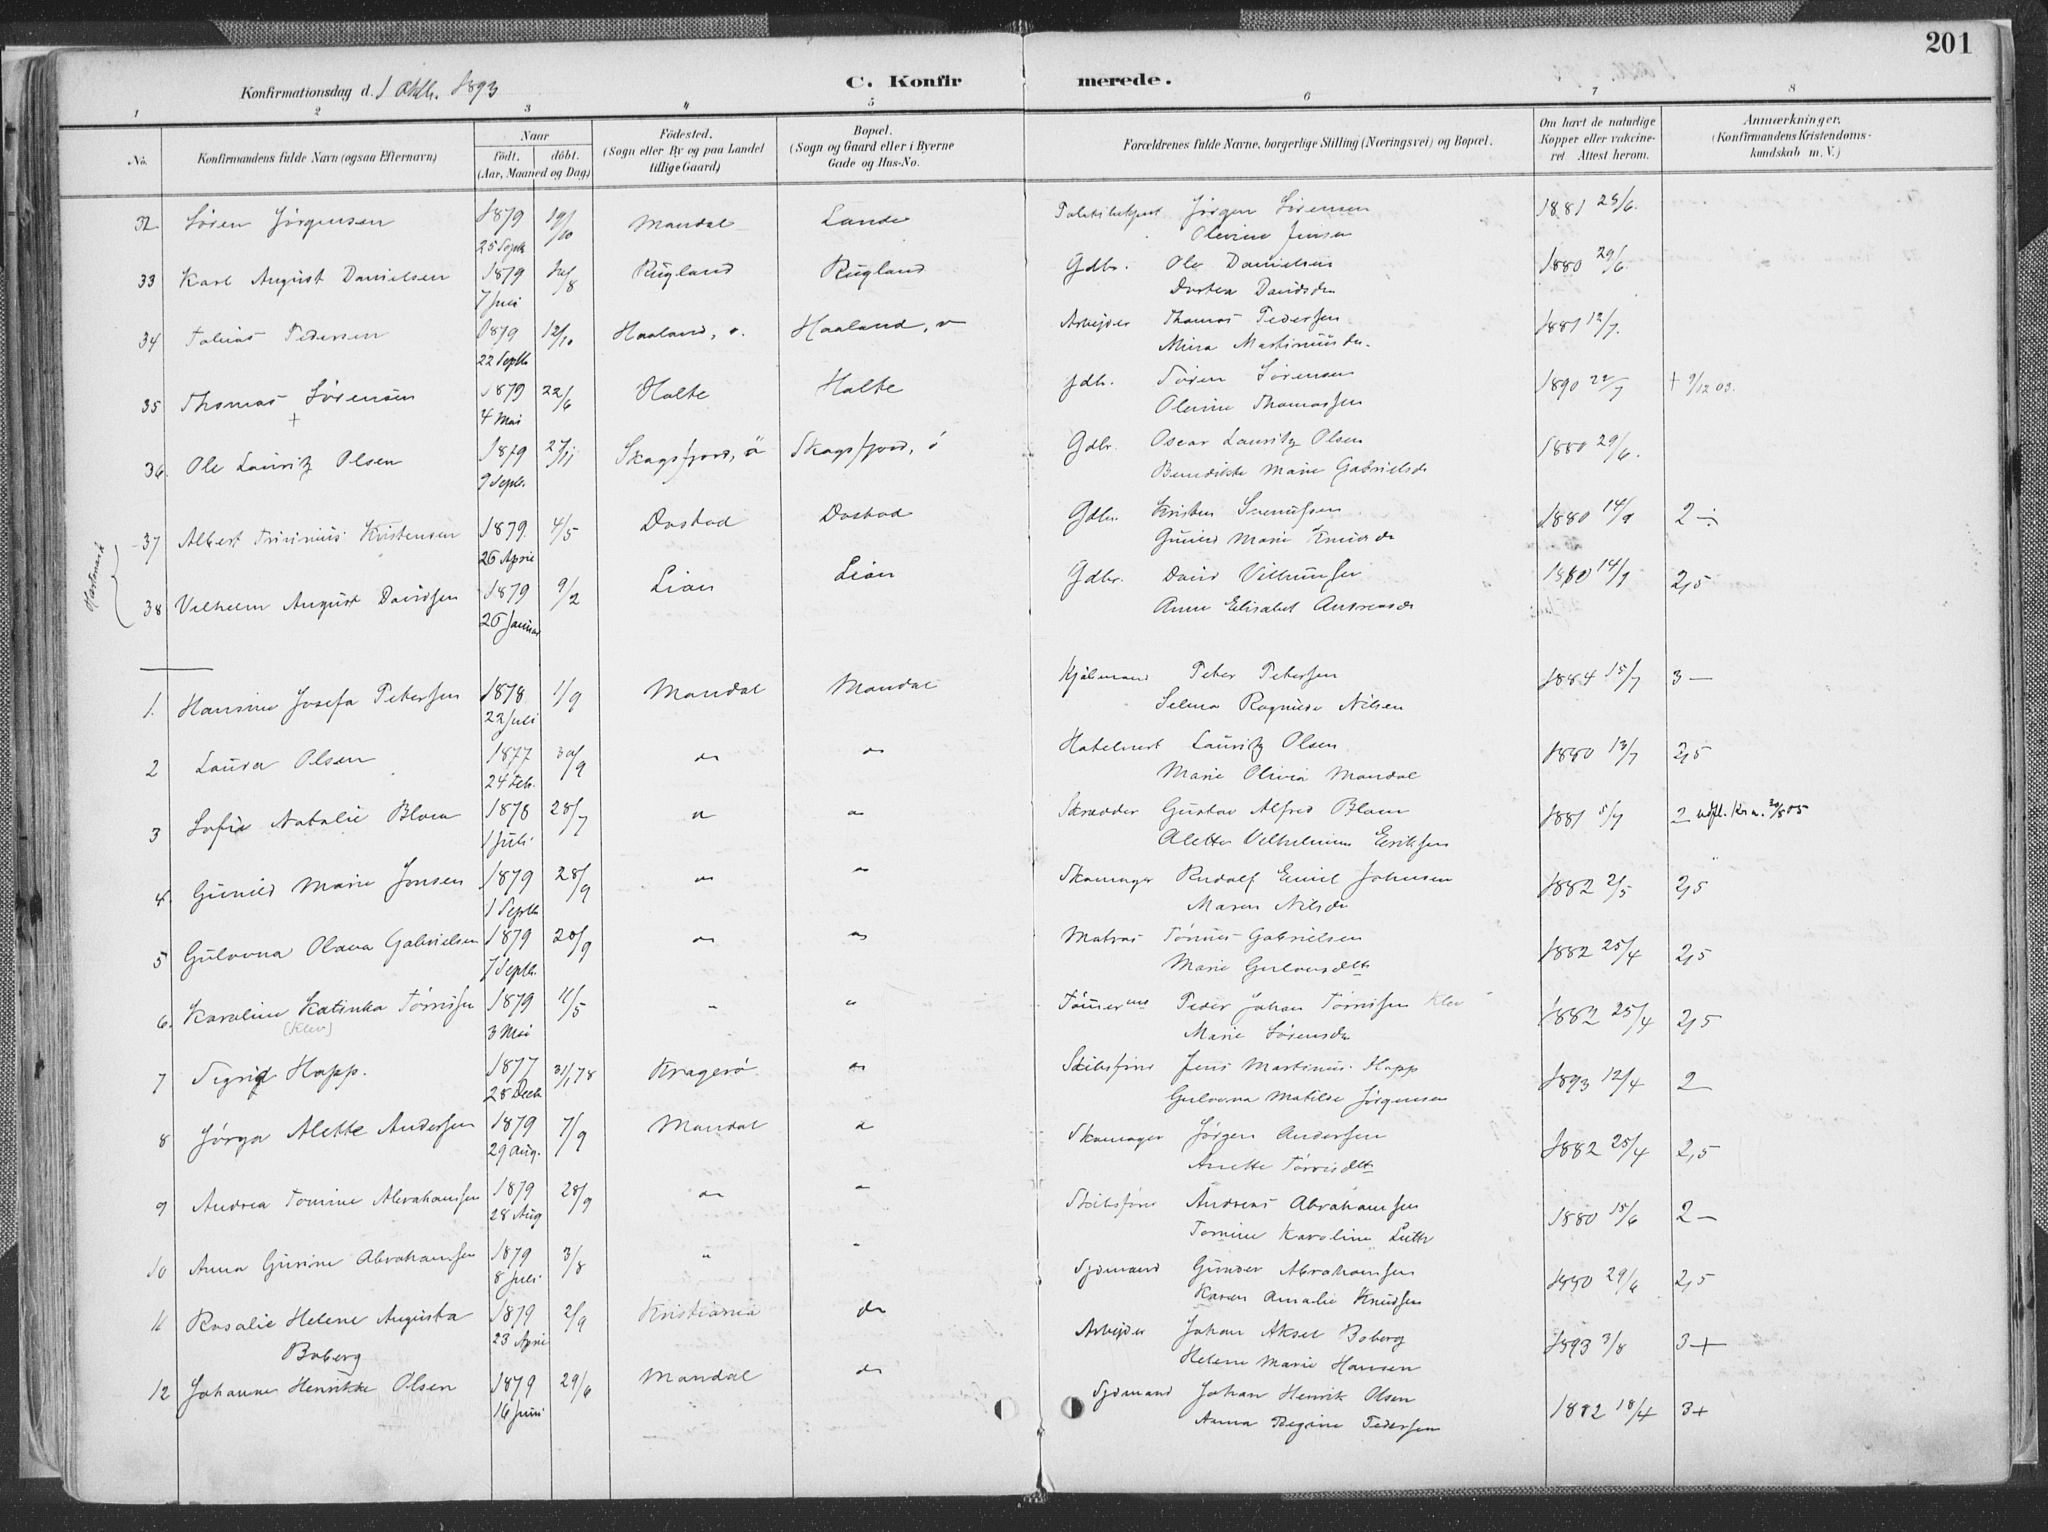 201
Konfirmationsdag d. 1 Oktb. 1893
C. Konfirmerede.
1 2 3 4 5 6 7 8
No.
Konfirmandens fulde Navn (ogsaa Efternavn)
Naar
födt. döbt.
(Aar, Maaned og Dag)
Födested.
(Sogn eller By og paa Landet
tillige Gaard)
Bopæl.
(Sogn og Gaard eller i Byerne
Gade og Hus-No.
Forældrenes fulde Navne, borgerlige Stilling (Næringsvei) og Bopæl.
Om havt de naturlige
Kopper eller vakcine-
ret Attest herom.
Anmærkninger.
(Konfirmandens Kristendoms-
kundskab m. V.)
32 Sören Jörgensen 1879 19/10 Mandal Lande Jörgen Sörensen 1881 25/6.
25 Septb Olevine Jensen
33 Karl August Danielsen 1879 Rugland Rugland Gdbr. Ole Danielsen 1880 29/6.
7 Juli Dortea Davidsdr
34 Tobias Pedersen 1879 12/10 Haaland, v. Haaland, v Arbejder Thomas Pedersen 1881 12/7.
22 Septb Mina Martiniusdr.
35 Thomas Sörensen 1879 22/6 Holte Holte Gdb. Sören Sörensen 1890 22/7 + 9/12 03.
+ 4 Mai Olevine Thomassen
36. Ole Lauritz Olsen 1879 27/11 Skagsfjord, ö Skogsfjord, ö Gdbr. Oscar Lauritz Olsen 1880 29/6.
9 Septb. Benedikte Marie Gabrielsdr
Hartmark
37 Albert Kristensen 1879. 4/5 Dastad Dastad Gdbr. Kristen 1880 14/9 2 ÷
26 April Gunild Marie Knudsdr
38 Vilhelm August Davidsen 1879 9/2 Lian Lian Gdbr. David 1880 14/9 2,5
26 Januar Anne Elisabet Andreasdr
1. Hansine Josefa Petersen 1878 1/9 Mandal Mandal Kjölmand Peter Petersen 1884 15/7 3 —
22 Juli Selma Ragnilde Nilsen
2 Laura Olsen 1877 30/9 do do Hotelvert Lauritz Olsen 1880 13/7 2,5
24 Feb. Marie Olivia Mandal
3 Sofie Natalie Blom 1878 28/7 do do Skrædder Gustav Alfred Blom 1881 5/7 2 udfl. Kr.a. 30/8 05
1 Juli. Alette Vilhelmine Eriksen
4. Gunild Marie Jonsen 1879 28/9 do do Skomager Rudolf Emil Johnsen 1882 2/5 2,5
1 Septb Maren Nilsdr
5 Gulovna Olava Gabrielsen 1879 20/9 do do Matros Törnes Gabrielsen 1882 25/4 2,5
7 Septb. Marie Gulovsdtr
6. Karoline Katinka Törrisen 1879 11/5 " " Tömerms Peder Johan Törrisen Klev 1882 25/4 2,5
(Klev) 3 Mai Marie Sörensdr
7 Sigrid Hopp. 1877 31/1 78 Kragerö. do Skibsförer Jens Martinius Hopp 1893 12/4 2
28 Decb Gulovna Matilde Jörgensen
8 Jörga Alette Andersen 1879 7/9 Mandal do Skomager Jörgen Andersen 1882 25/4 2,5
29 Aug. Anette Törrisdtr
9 Andrea Tomine Abrahamsen 1879 28/9 do " Skibsförer Andreas Abrahamsen 1880 15/6 2 —
28 Aug Tomine Karoline
10 Anna Gurine Abrahamsen 1879 3/8 " " Sjömand Gunder Abrahamsen 1880 29/6 2,5
8 Juli. Karen Amalie Knudsen
11 Rosalie Helene Augusta 1879 2/9 Kristiania do Arbejder Johan Aksel Boberg 1893 3/8 3+
Boberg 23 April Helene Marie Hansen
12 Johanne Henrikke Olsen 1879 29/6 Mandal do Sjömand Johan Henrik Olsen 1882 18/4 3+
16 Juni Anna Regine Pedersen